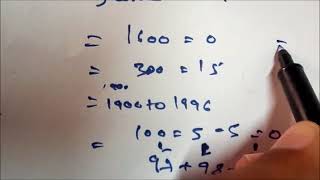 = 1600 = 0 =
= 300 = 15
= 1900 to 1996
= 100 = 5 - 5 = 0
97 + 98